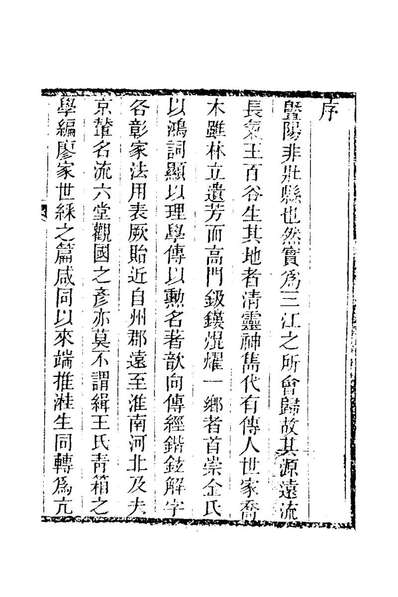 序
暨陽非壯縣也然實為三江之所會歸故其源遠流
長氣王百谷生其地者清靈神雋代有傳人世家喬
木雖林立遺芳而高門鈒鏤焜燿一鄉者首崇金氏
以鴻詞顯以理學傳以勳名著歆向傳經鍇鉉解字
各彰家法用表厥貽近自州郡遠至淮南河北及夫
京輦名流六堂觀國之彥亦莫不謂緝王氏青箱之
學編廖家世綵之篇咸同以來端推溎生同轉為亢